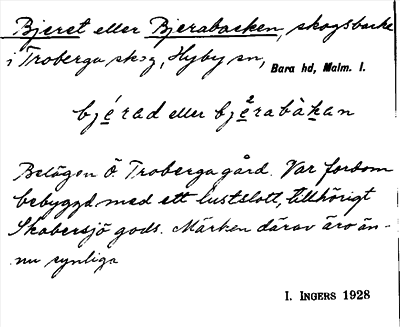 Bjeret eller Bjerabacken, skogsbacke
i Troberga skog, Hyby sn, Bara hd, Malm. l.
bjérad eller bjèrabàkan
Belägen Ö. Troberga gård. Var fordom
bebyggd med ett lustslott, tillhörigt
Skabersjö gods. Märken därav äro än-
nu synliga
I. INGERS 1928